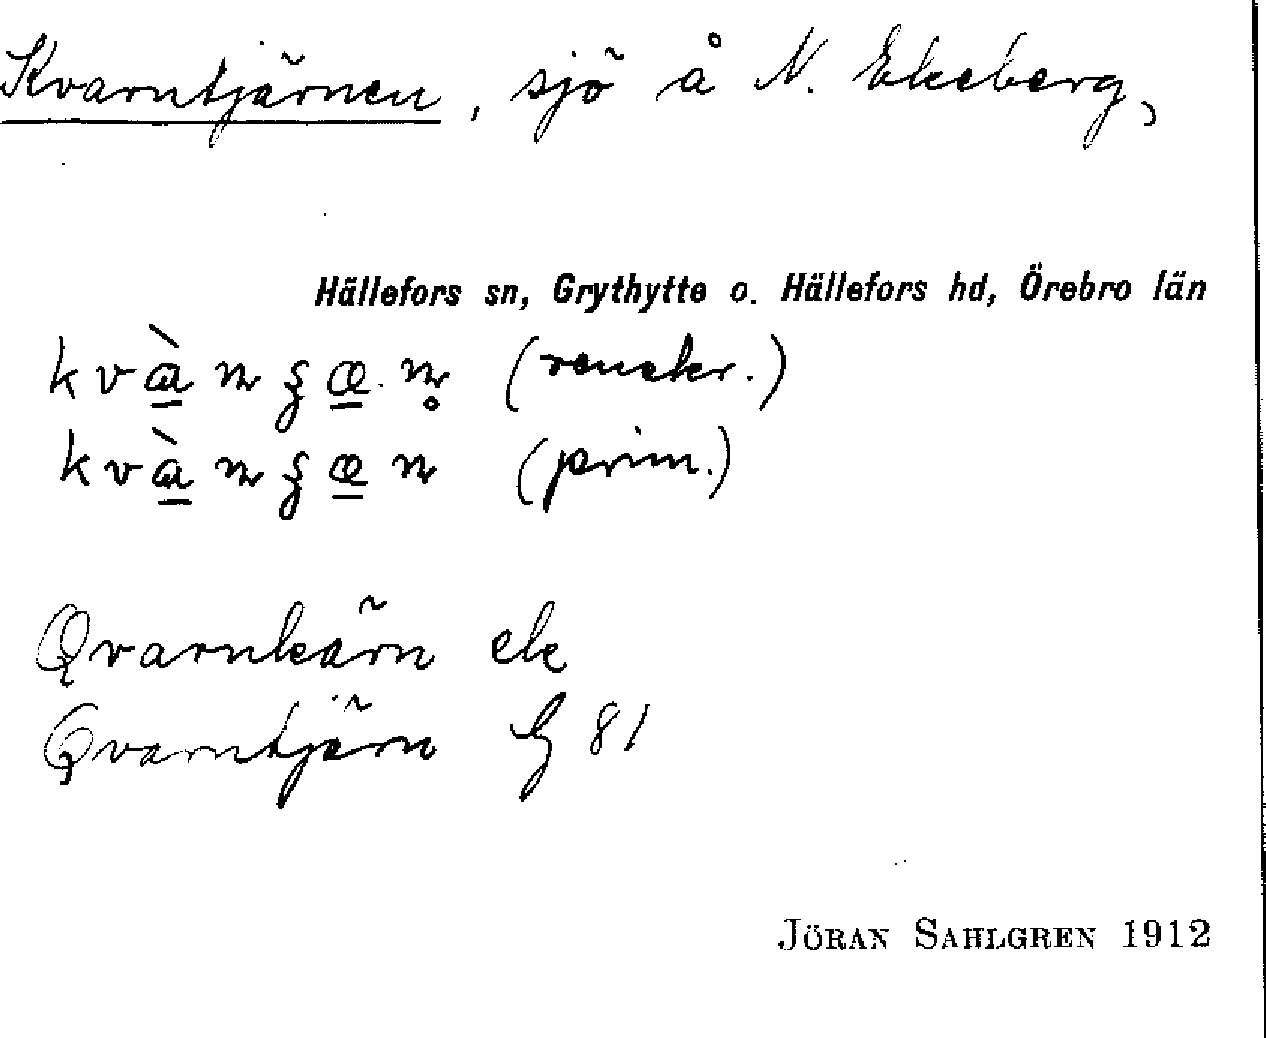 Kvarntjärnen, sjö å N. Ekeberg,
Hällefors sn, Grythytte o. Hällefors hd, Örebro län
kvà̱nʒæ̱n̥ (renskr.)
kvà̱nʒæ̱n (prim.)
Qvarnkärn ek
Qvarntjärn G 81
JÖRAN SAHLGREN 1912